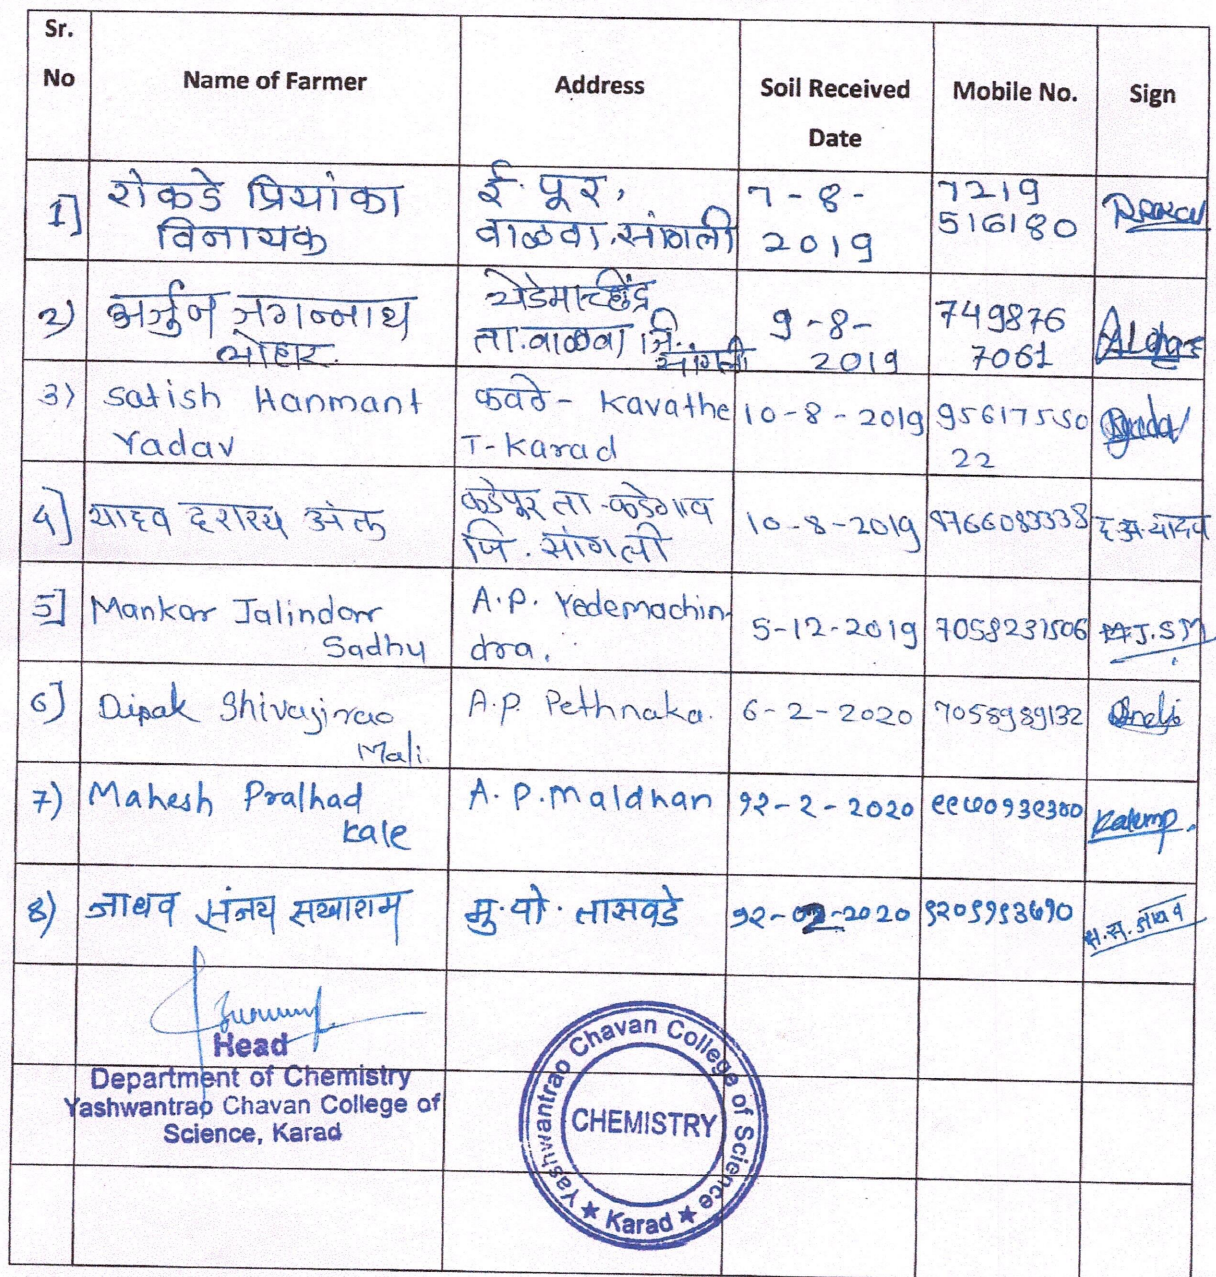 Sr. No
Name of Farmer
Address
Soil Received Date
Mobile No.
Sign
1]
रोकडे प्रियांका
विनायक
ई. पूर,
वाळवा, सांगली
7-8-
2019
7219
516180
2)
अर्जुन जगन्नाथ
लोहार.
येडेमाच्छिंद्र
ता. वाळवा, जि.
सांगली
9-8-
2019
749876
7061
3)
Satish Hanmant
Yadav
कवठे - Kavathe
T-Karad
10-8-2019
95617550
22
4]
यादव दशरथ
कडेपूर ता-कडेगाव
जि. सांगली
10-8-2019
द.अ.यादव
5]
Mankar Jalindar
Sadhu
A.P. Yedemachin-
dra.
5-12-2019
7058231506
J.S.M
6]
Dipak Shivajirao
Mali.
A.P. Pethnaka.
6-2-2020
7058989132
7)
Mahesh Pralhad
Kale
A.P. Maldhan
१२-2-2020
Kalemp.
8)
जाधव संजय सखाराम
मु. पो. तासवडे
१२-02-2020
स.स. जाधव
Head
Department of Chemistry
Yashwantrao Chavan College of
Science, Karad
Yashwantrao Chavan College of Science
CHEMISTRY
★ Karad ★